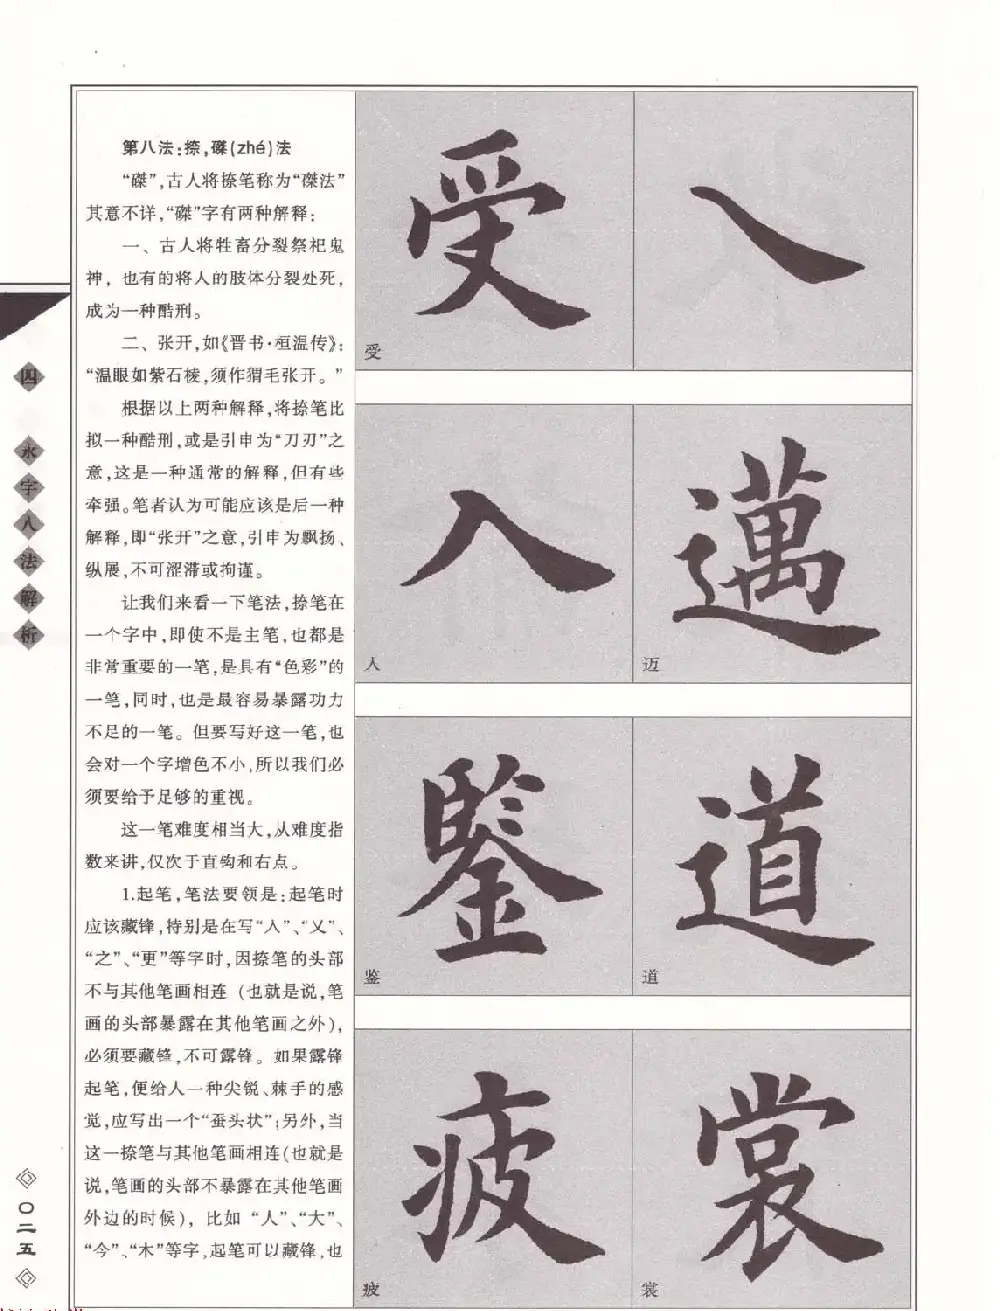 第八法：捺，磔（zhé）法
“磔”，古人将捺笔称为“磔法”
其意不详，“磔”字有两种解释：
一、古人将牲畜分裂祭祀鬼
神，也有的将人的肢体分裂处死，
成为一种酷刑。
二、张开，如《晋书·桓温传》：
“温眼如紫石棱，须作猬毛张开。”
根据以上两种解释，将捺笔比
拟一种酷刑，或是引申为“刀刃”之
意，这是一种通常的解释，但有些
牵强。笔者认为可能应该是后一种
解释，即“张开”之意，引申为飘扬、
纵展，不可涩滞或拘谨。
让我们来看一下笔法，捺笔在
一个字中，即使不是主笔，也都是
非常重要的一笔，是具有“色彩”的
一笔，同时，也是最容易暴露功力
不足的一笔。但要写好这一笔，也
会对一个字增色不小，所以我们必
须要给予足够的重视。
这一笔难度相当大，从难度指
数来讲，仅次于直钩和右点。
1.起笔，笔法要领是：起笔时
应该藏锋，特别是在写“人”、“乂”、
“之”、“更”等字时，因捺笔的头部
不与其他笔画相连（也就是说，笔
画的头部暴露在其他笔画之外），
必须要藏锋，不可露锋。如果露锋
起笔，便给人一种尖锐、棘手的感
觉，应写出一个“蚕头状”；另外，当
这一捺笔与其他笔画相连（也就是
说，笔画的头部不暴露在其他笔画
外边的时候），比如“人”、“大”、
“今”、“木”等字，起笔可以藏锋，也
受
受
人
邁
人
迈
鑒
道
鉴
道
疲
裳
疲
裳
四
永字八法解析
〇二五